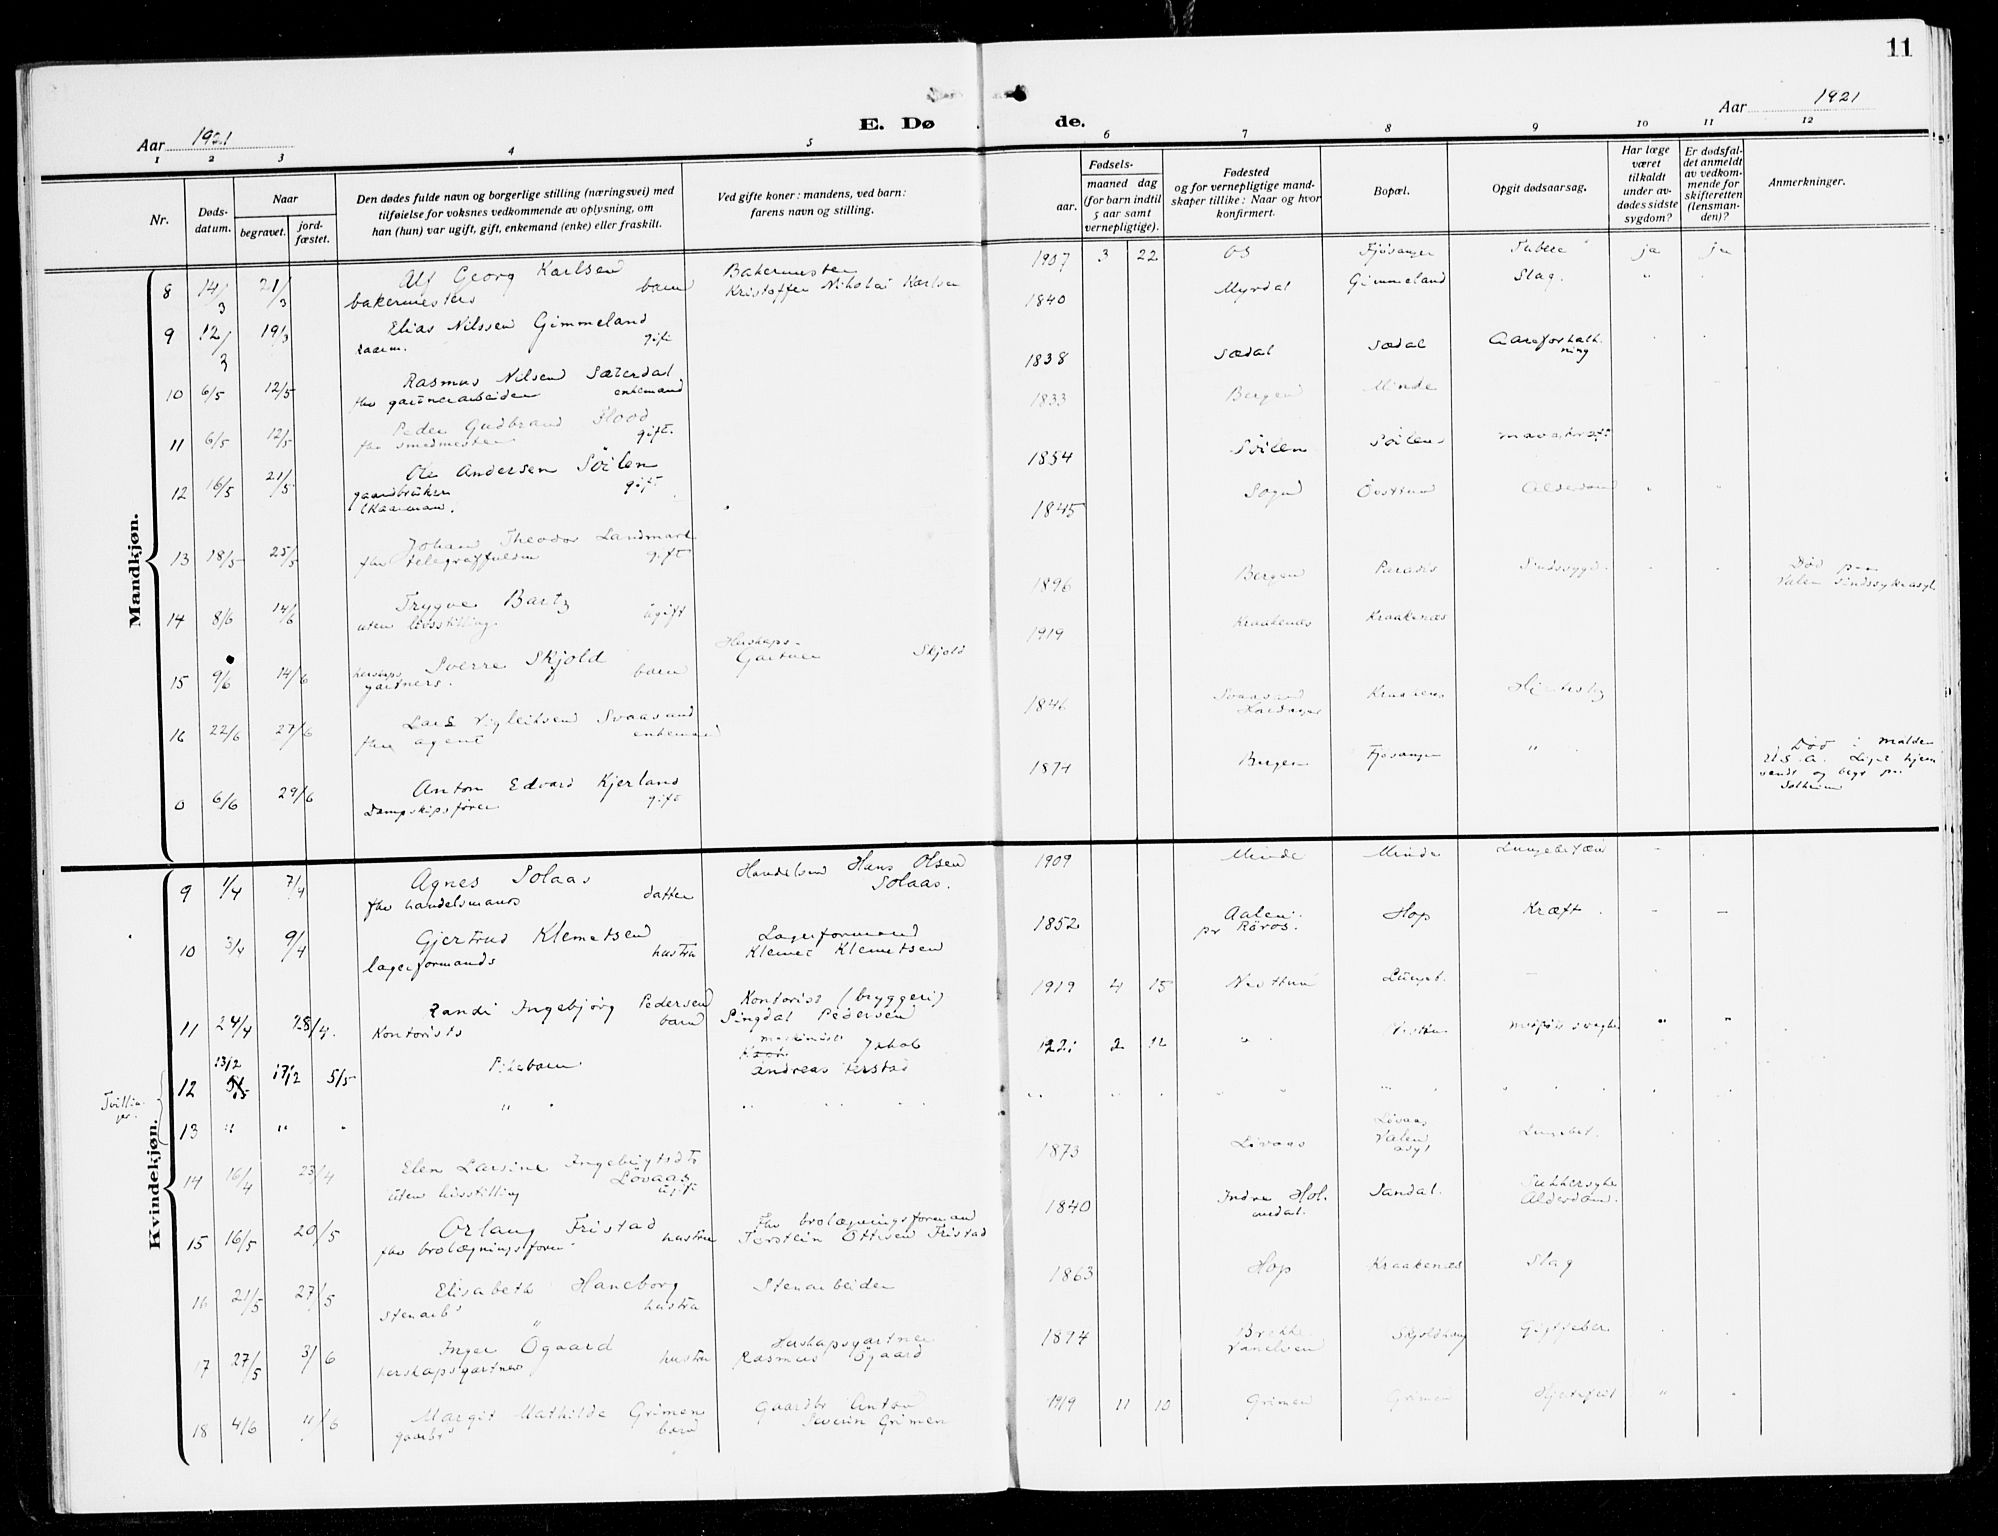 11
Aar 1921
E. Døde.
Aar 1921
1 2 3 4 5 6 7 8 9 10 11 12
Nr.
Døds-
datum.
Naar
begravet.
jord-
fæstet.
Den dødes fulde navn og borgerlige stilling (næringsvei) med
tilføielse for voksnes vedkommende av oplysning, om
han (hun) var ugift, gift, enkemand (enke) eller fraskilt.
Ved gifte koner: mandens, ved barn:
farens navn og stilling.
Fødsels-
aar.
maaned dag
(for barn indtil
5 aar samt
vernepligtige).
Fødested
og for vernepligtige mand-
skaper tillike: Naar og hvor
konfirmert.
Bopæl.
Opgit dødsaarsag.
Har læge
været
tilkaldt
under av-
dødes sidste
sygdom?
Er dødsfal-
det anmeldt
av vedkom-
mende for
skifteretten
(lensman-
den)?
Anmerkninger.
Mandkjøn.
8 14/3 21/3 Alf Georg Karlsen
bakermesters barn
Bakermester
Kristoffer Nikolai Karlsen
1907 3 22 OS Fjøsanger ja ja
9 12/3 19/3 Elias Nilssen Gimmeland
kaarm. gift
1840 Myrdal Gimmeland Slag. "
10 6/5 12/5 Rasmus Nilsen Sæterdal
fhv gartnerarbeider enkemand
1838 Sædal Sædal Aareforkalk-
ning
11 6/5 12/5 Peder Gudbrand Flood
fhv smedmester gift.
1833 Bergen Minde
12 16/5 21/5 Ole Andersen Söilen
gaardbruker gift
(Kaarmand.
1854 Söilen Söilen mavekræft
13 18/5 25/5 Johan Theodor Landmark
fhv telegraffuldm gift
1845 Sogn Øvsttun Alderdom
14 8/6 14/6 Trygve Bartz
uten livsstilling. ugift
1896 Bergen Paradis Sindssyge
Død paa
Valen Sindssykeasyl
15 9/6 14/6 Sverre Skjold
herskaps
gartners. barn
Herskaps-
Gartner Skjold
1919 Kraakenes Kraakenæs
16 22/6 27/6 Lars Vigleiksen Svaasand
fhv agent enkemand
1846 Svaasand
Hardanger Kraakenes
0 6/6 29/6 Anton Edvard Kjerland
Dampskipsfører gift
1874 Bergen Fjøsanger "
Død i Malden
U.S.A. Liget hjem
sendt og begr paa
Solheim
Kvindekjøn.
9 1/4 7/4 Agnes Solaas
fhv handelsmands datter
Handelsmd Hans Olsen
Solaas.
1909 Minde Minde
10 3/4 9/4 Gjertrud Klemetsen
lagerformands hustru
Lagerformand
Klemet Klemetsen
1852 Aalen
pr Röros. Hop Kræft
11 24/4 28/4. Randi Ingebjörg Pedersen
Kontorists barn
Kontorist (bryggeri)
Singdal Pedersen
1919 4 15 Nesttun
Tvillin-
ger.
12 13/2 17/2 5/5 Pikebarn
Jakob
Andreas
2 12 " "
13 " " " " "
14 16/4 23/4 Elen Larsine Ingebrigtsdtr
Lövaas
uten livsstilling ugift
1873 Lövaas Lövaas
Valen
asyl
15 16/5 20/5 Orlaug Fristad
fhv brolægningsform hustru
Fhv brolægningsformand
Torstein Ottesen Fristad
1840 Indre Hol-
medal. Sandal. Sukkersyke
Alderdom.
16 21/5 27/5 Elisabeth Haneborg
stenarbs hustru
Stenarbeider
1863 Hop Kraakenæs Slag
17 27/5 3/6 Inger Ögaard
herskapsgartner hustru
Herskapsgartner
Rasmus Ögaard
1874 Brekke Gigtfeber
18 4/6 11/6 Margit Mathilde Grimen
gaardbrs barn
Gaardbr Anton
Severin Grimen
1919 11 10 Grimen Grimen "